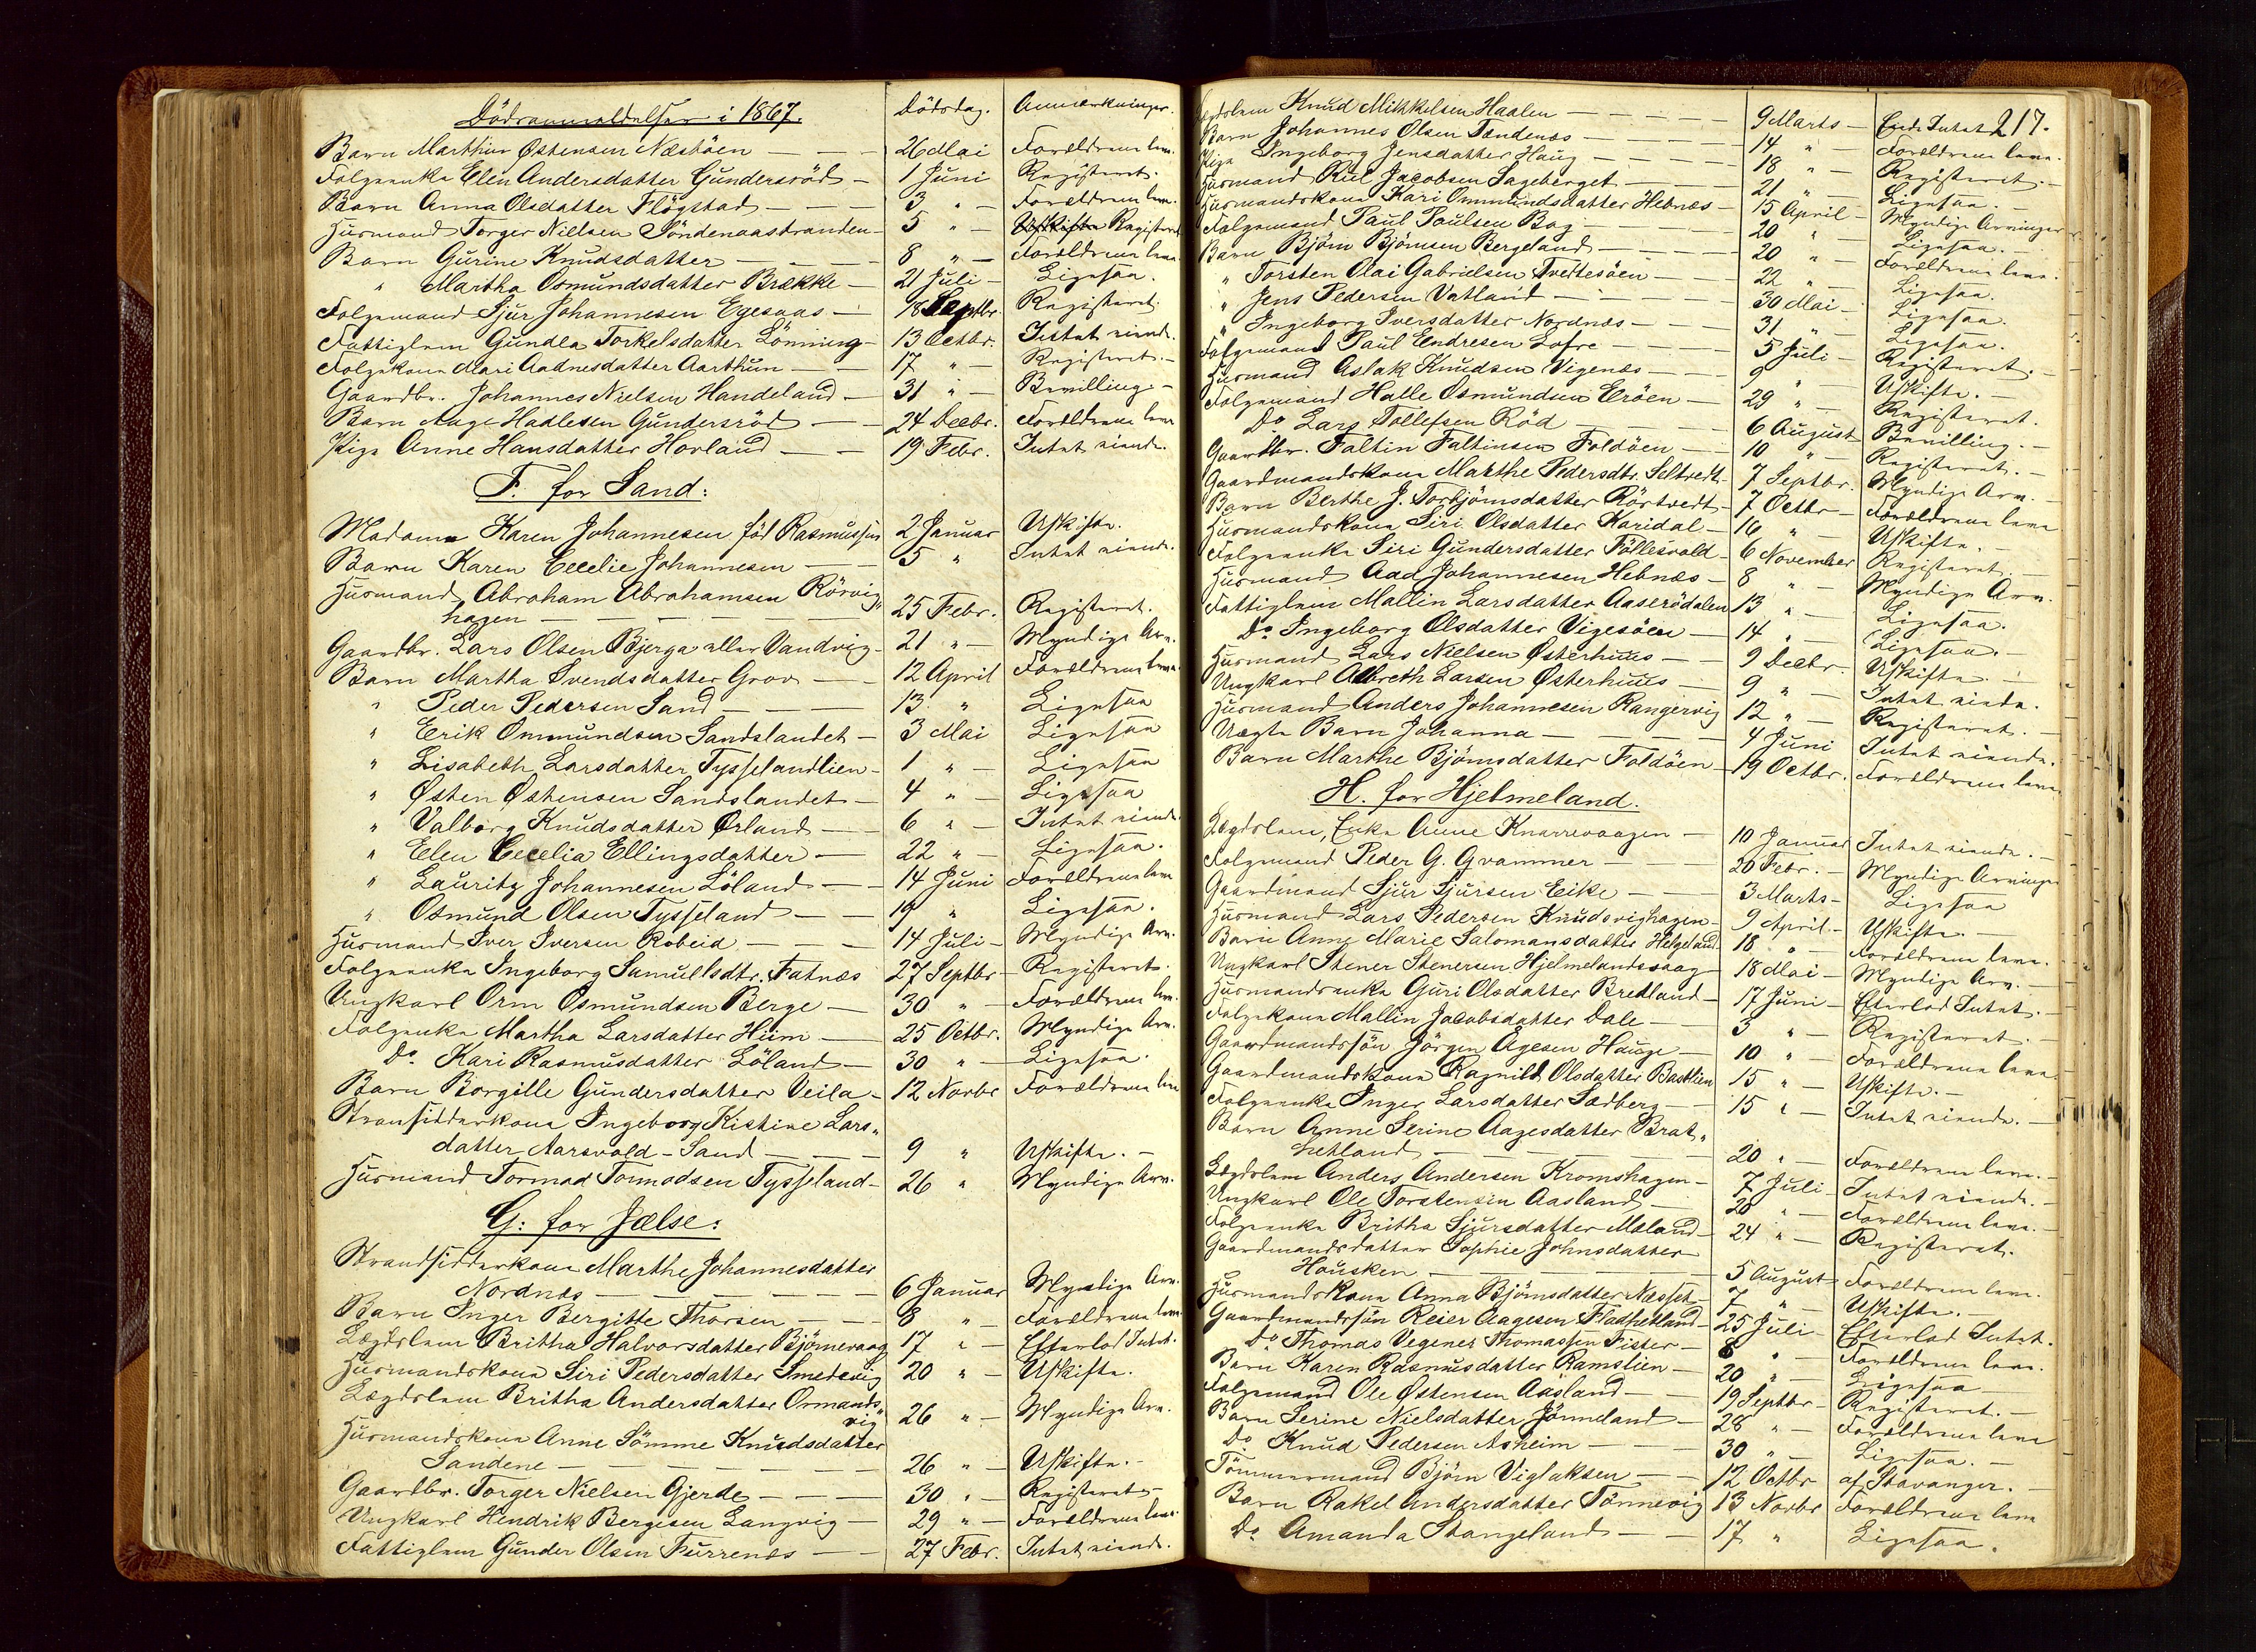 Dödsanmeldelser i 1867. Dödsdag. Anmærkninger.
Barn Marthin Østensen Næstöen — — 26 Mai Forældrene leve.
Folgeenke Elen Andersdatter Gundersröd — 1 Juni Registeret.
Barn Anna Olsdatter Flögstad — — — 3 " — Forældrene leve.
Husmand Torger Nielsen Söndenaastranden — 5 " — Udskifte Registeret
Barn Gurine Knudsdatter — — — — 8 " — Forældrene leve
" Martha Osmundsdatter Brække — 21 Juli — Ligesaa.
Folgemand Sjur Johannesen Egesaas — 18 Septbr. Registeret.
Fattiglem Gundla Torkelsdatter Lönning — 13 Octbr. Intet eiende.
Folgekone Mari Aadnesdatter Aarthun — — 17 " — Registeret. —
Gaardbr. Johannes Nielsen Handeland — 31 " — Bevilling —
Barn Aage Hadlesen Gundersröd — — 24 Decbr. Forældrene leve
Pige Anne Hansdatter Hovland — — 19 Febr. Intet eiende.
F. for Sand:
Madame Karen Johannesen föd Rasmussen 2 Januar Udskifte.
Barn Karen Cecelie Johannesen — — 5 " Intet eiende.
Husmand Abraham Abrahamsen Rörvig„
hagen — — — — — — 25 Febr. Registeret.
Gaardbr. Lars Olsen Bjerga eller Vandvig — 21 " — Myndige Arv.
Barn Martha Svendsdatter Grov — — 12 April Forældrene leve.
" Peder Pedersen Sand — — — 13 " Ligesaa
" Erik Ommundsen Sandslandet — 3 Mai Ligesaa
" Lisabeth Larsdatter Tysselandlien — 1 " — Ligesaa
" Østen Østensen Sandslandet — 4 " — Ligesaa
" Valborg Knudsdatter Ørland — — 6 " — Intet eiende
" Elen Cecelia Ellingsdatter — — 22 " — Ligesaa.
" Lauritz Johannesen Löland — — 14 Juni Forældrene leve
" Osmund Olsen Tysseland — — 19 " Ligesaa.
Husmand Iver Iversen Robeid — — — 14 Juli — Myndige Arv.
Folgeenke Ingeborg Samuelsdtr. Fatnæs 27 Septbr — Registeret.
Ungkarl Orm Osmundsen Berge — 30 " — Forældrene leve.
Folgeenke Martha Larsdatter Hiim — 25 Octbr. Myndige Arv.
Do. Kari Rasmusdatter Löland — 30 " — Ligesaa.
Barn Borgille Gundersdatter Veila — 12 Novbr Forældrene leve
Stransidderkone Ingeborg Kistine Lars„
datter Aarsvold - Sand — — — 9 " Udskifte. —
Husmand Tormod Tormodsen Tysseland — 26 " Myndige Arv.
G: for Jelse:
Strandsidderkone Marthe Johannesdatter
Nordnæs — — — — — 6 Januar Myndige Arv.
Barn Inger Bergitte Thorsen — — — 8 " Forældrene leve.
Lægdslem Britha Halvorsdatter Björnevaag 17 " — Efterlod Intet.
Husmandskone Siri Pedersdatter Smedsvig 20 " — Udskifte.
Lægdslem Britha Andersdatter Ormands„
vig 26 " — Myndige Arv.
Husmandskone Anne Sömme Knudsdatter
Sandene — — — — — 26 " — Udskifte. —
Gaardbr. Torger Nielsen Gjerde — — — 30 " — Registeret —
Ungkarl Hendrik Bergesen Langvig — — 29 " — Forældrene leve.
Fattiglem Gunder Olsen Furrenæs — — 27 Febr. Intet eiende.
217.
Lægdslem Knud Mikkelsen Haalen — — — — 9 Marts — Eiede Intet
Barn Johannes Olsen Tendenæs — — — — 14 " — Forældrene leve.
Pige Ingeborg Jensdatter Haug — — — — 18 " — Registeret. —
Husmand Riel Jacobsen Sageberget — — — 21 " — Ligesaa. —
Husmandskone Kari Ommundsdatter Hebnæs — 15 April — Myndige Arvinger
Folgemand Paul Poulsen Bog — — — 20 " — Ligesaa. —
Barn Björn Björnsen Bergeland — — — 20 " — Forældrene leve.
" Torsten Olai Gabrielsen Tveitesöen — 22 " — Ligesaa.
" Jens Pedersen Vatland — — — 30 Mai — Ligesaa.
" Ingeborg Iversdatter Nordnæs — — — 31 " Ligesaa.
Folgemand Paul Endresen Lofre — — — 5 Juli — Registeret. —
Husmand Aslak Knudsen Vigenæs — — 9 " — Udskifte. —
Folgemand Halle Osmundsen Eröen — 29 " — Registeret.
Do Lars Tollefsen Röd — — — 6 August Bevilling. —
Gaardbr. Faltin Faltinsen Foldöen — — 10 " — Registeret. —
Gaardmandskone Marthe Pedersdtr. Seltvedt — 7 Septbr. Myndige Arv. —
Barn Berthe J. Torbjörnsdatter Rörtvedt — 7 Octbr — Forældrene leve
Husmandskone Siri Olsdatter Karidal — 16 " — Udskifte. —
Folgeenke Siri Gundersdatter Töllesvold — 6 November Registeret. —
Husmand Aad Johannesen Hebnæs — 8 " — Myndige Arv.
Fattiglem Mallin Larsdatter Aaserödalen 13 " — Ligesaa.
Do. Ingeborg Olsdatter Vigesöen — 14 " Ligesaa. —
Husmand Lars Nielsen Østerhuus — — 9 Decbr Udskifte. —
Ungkarl Albreth Larsen Østerhuus — — 9 " — Intet eiende.
Husmand Anders Johannesen Rangervig 12 " — Registeret. —
Uægte Barn Johanna — — — — 4 Juni Intet eiende.
Barn Marthe Björnsdatter Foldöen — 19 Octbr. Forældrene leve
H. for Hjelmeland.
Lægdslem, Enke Anne Knarrevaagen — 10 Januar Intet eiende. —
Folgemand Peder G. Gvammer — — 20 Febr. — Myndige Arvinger
Gaardmand Sjur Sjursen Eike — — 3 Marts — Ligesaa
Husmand Lars Pedersen Knudsvighagen — 9 April — Udskifte. —
Barn Anne Marie Salomansdatter Helgeland 18 " — Forældrene leve.
Ungkarl Stener Stenersen Hjelmelandsvaag — 18 Mai — Myndige Arv. —
Husmandsenke Guri Olsdatter Bredland — 17 Juni — Efterlod Intet. —
Folgekone Mallin Jacobsdatter Dale — — 3 " — Registeret. —
Gaardmandssön Jörgen Ågesen Hauge — 10 " — Forældrene leve.
Gaardmandskone Ragnild Olsdatter Bastlien 15 " — Udskifte. —
Folgeenke Inger Larsdatter Sedberg — — 15 " — Intet eiende. —
Barn Anne Serine Aagesdatter Brat„
hetland — — — — — 20 " — Forældrene leve. —
Lægdslem Anders Andersen Kromshagen — 7 Juli — Intet eiende. —
Ungkarl Ole Torstensen Aasland — 20 " — Forældrene leve. —
Folgeenke Britha Sjursdatter Mæland — 24 " — Registeret.
Gaardmandsdatter Sophie Johnsdatter
Hausken — — — — — 5 August Forældrene leve.
Husmandskone Anna Björnsdatter Næsset — 7 " — Udskifte. —
Gaardmandssön Reier Aagesen Fladhetland — 25 Juli — Efterlod Intet.
Do Thomas Vegener Thomassen Fister — 8 " — Forældrene leve.
Barn Karen Rasmusdatter Ramslien — 20 " — Ligesaa —
Folgemand Ole Østensen Aasland — — 19 Septbr — Registeret. —
Barn Serine Nielsdatter Jönneland — 28 " — Forældrene leve
Do Knud Pedersen Asheim — — — 30 " — Ligesaa. —
Tömmermand Björn Viglaksen — — 12 Octbr af Stavanger. —
Barn Rakel Andersdatter Tönnevig 13 Novbr Forældrene leve
Do. Amanda Stangeland — — 17 " Ligesaa.